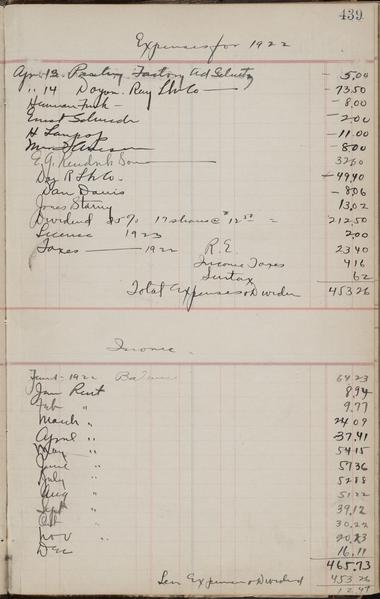 439
Expenses for 1922
Apr. 12. Factory Ad - 5.00
" 14 Dayon. Ray L & Co - 73.50
Herman Funk - - 8.00
Ernst - 2.00
H - 11.00
- 8.00
E. G. Kendrick Son 32.60
Day R L & Co. - 49.40
Dan Davis - 8.06
Jones 13.02
Dividend 85% 17 shares @ $12.50 = 212.50
License 1923 2.00
Taxes - 1922 R.E. 23.40
Income Taxes 4.16
Surtax 62
Total Expenses & Dividen 453.26
Income
1922 Balance 64.23
Jan Rent 8.94
Feb " 9.77
March " 24.09
April " 37.41
May " 54.15
June " 57.36
July " 52.88
Aug " 51.22
Sept " 39.12
Oct " 30.22
Nov " 20.23
Dec 16.11
465.73
Less Expenses & Dividend 453.26
12.47